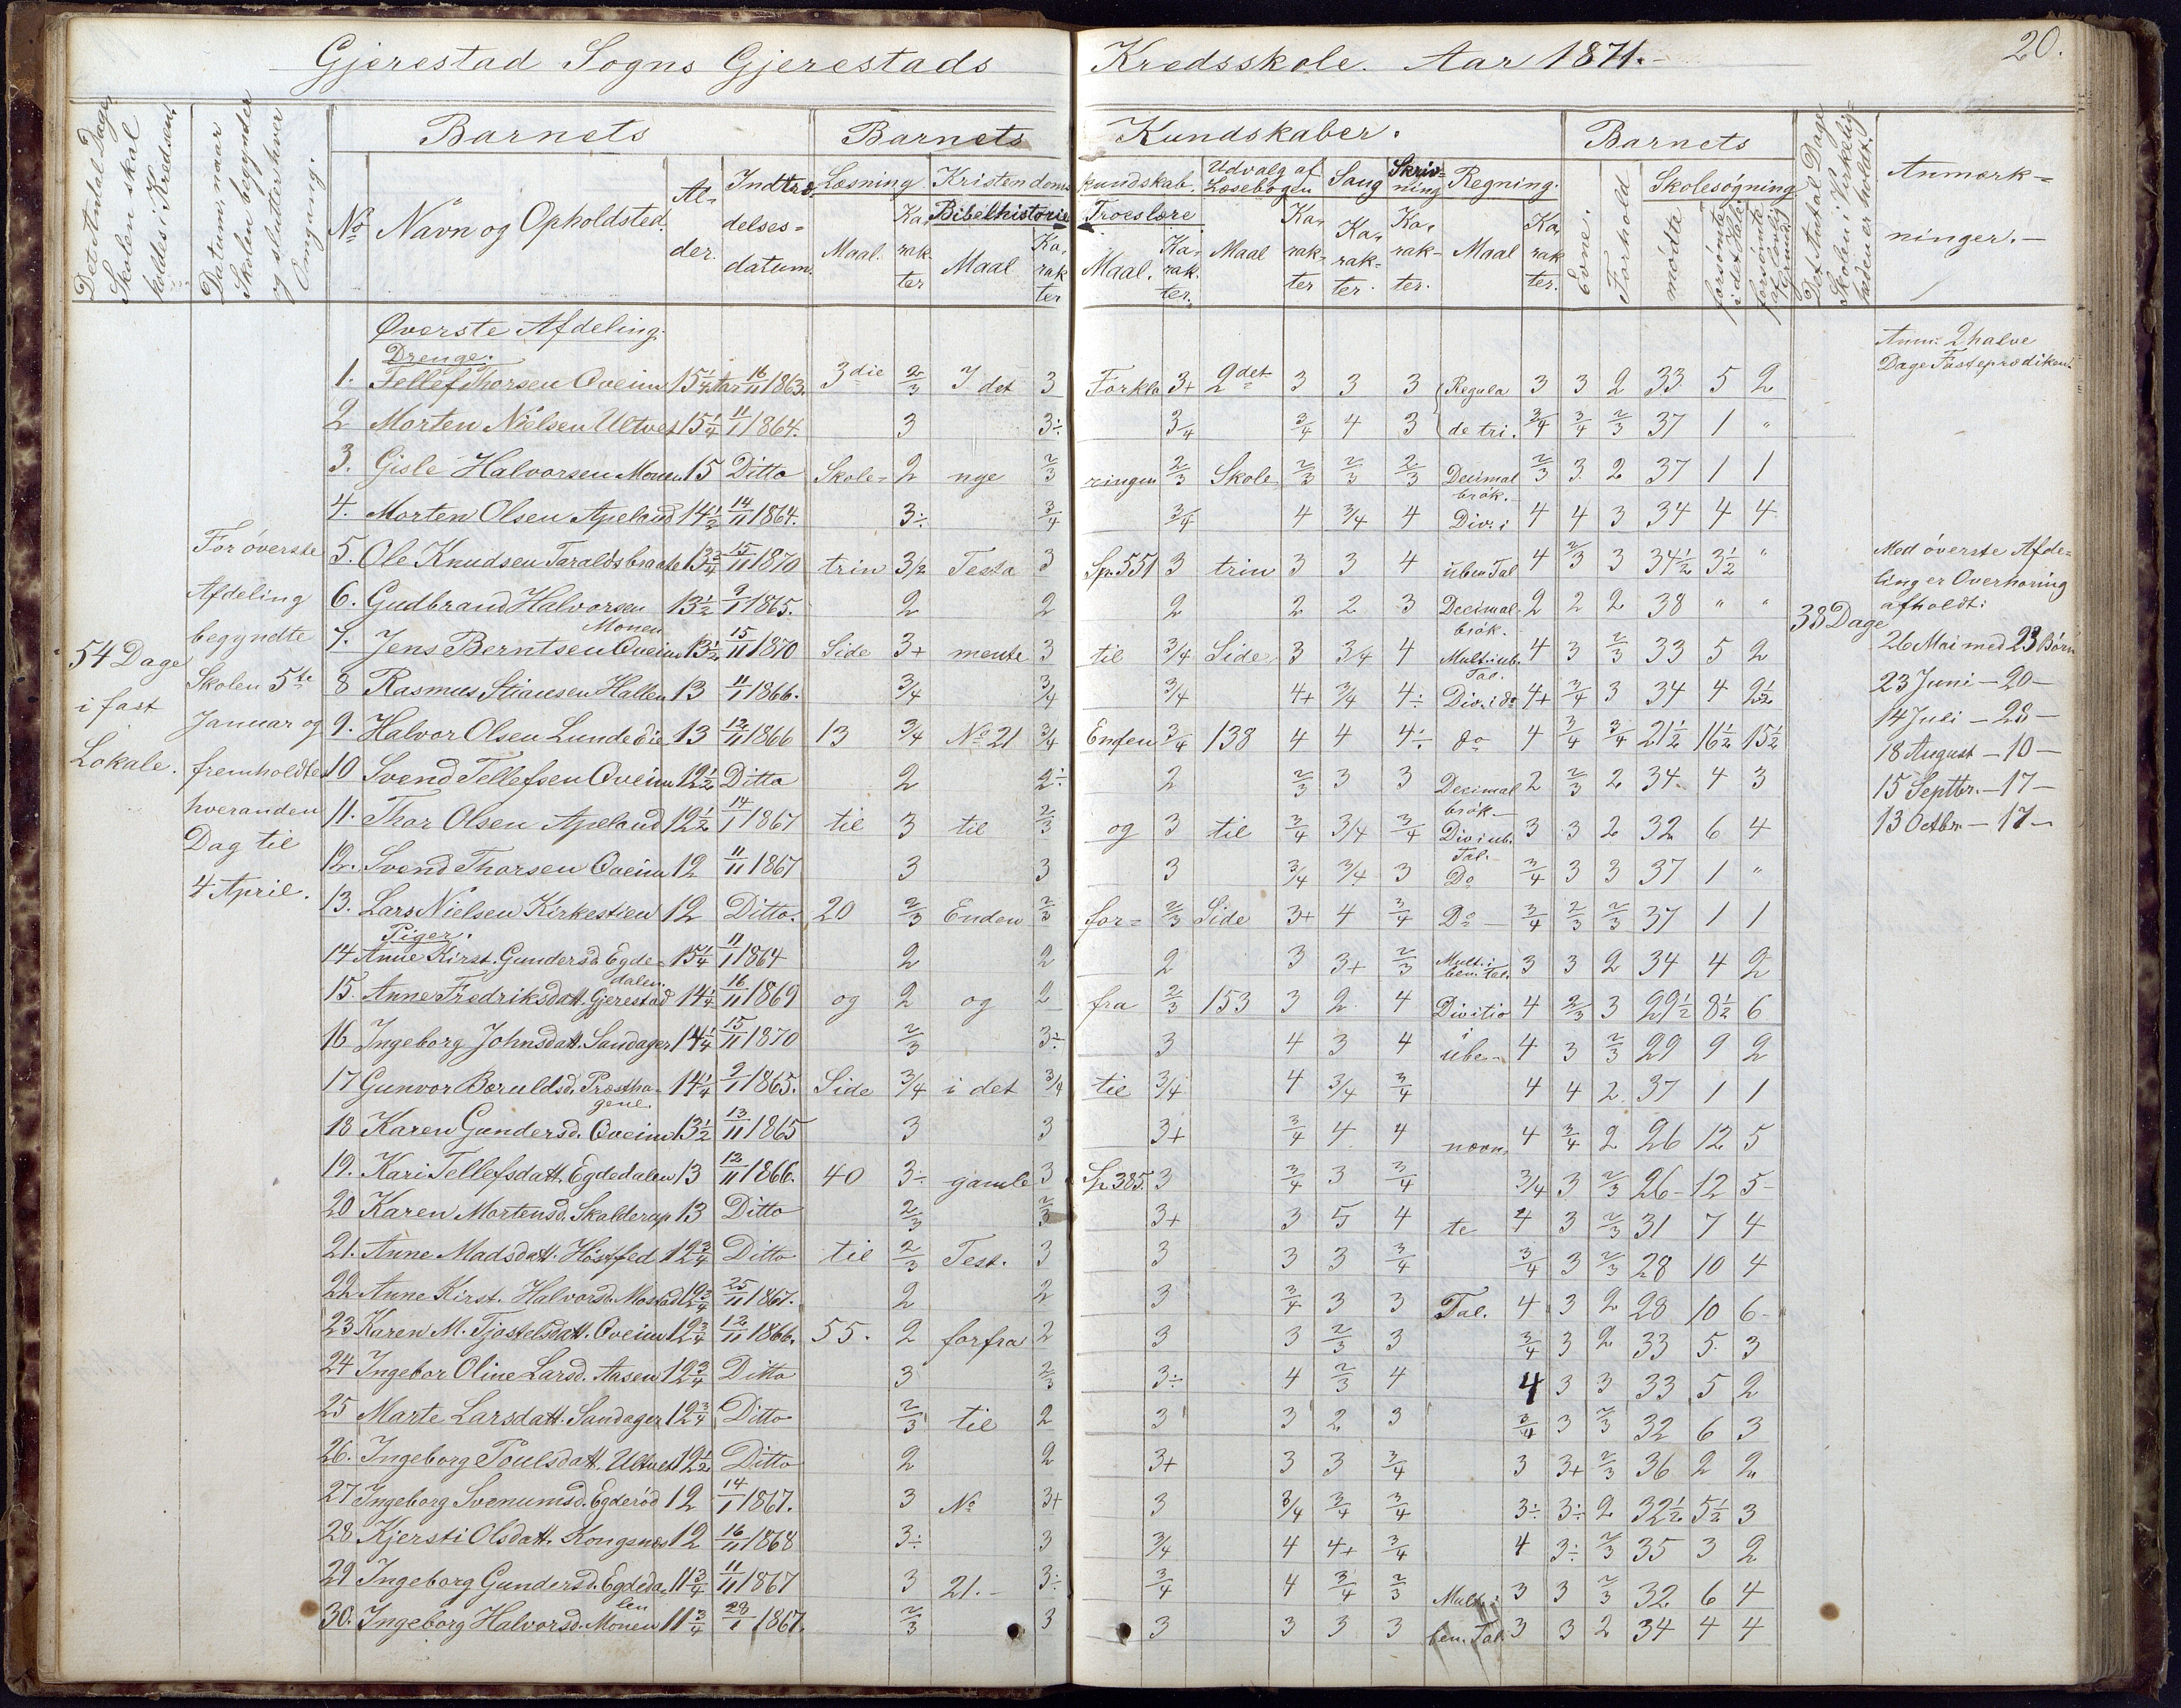 Gjerestad Sogns Gjerestads Kredsskole. Aar 1871.-
20.
Det Antal Dage,
Skolen skal
holdes i Kredsen.
Datum, naar
Skolen begynder
og slutter hver
Omgang.
Barnets
No
Navn og Opholdsted.
Al-
der.
Indtræ-
delses-
datum.
Barnets Kundskaber.
Læsning
Maal.
Ka-
rak-
ter
Kristendoms
kundskab.
Bibelhistorie
Maal
Ka-
rak-
ter
Troeslære
Maal.
Ka-
rak-
ter.
Udvalg af
Læsebogen
Maal
Ka-
rak-
ter
Sang
Ka-
rak-
ter.
Skriv-
ning
Ka-
rak-
ter.
Regning.
Maal
Ka-
rak-
ter.
Barnets
Evne.
Forhold
Skolesøgning
mødte
forsømte
i det Hele.
forsømte
af lovlig
Grund
Det Antal Dage
Skolen i Virkelig-
heden er holdt.
Anmærk-
ninger.-
54 Dage
i fast
Lokale.
For øverste
Afdeling
begyndte
Skolen 5te
Januar og
fremholdtes
hveranden
Dag til
4 April.
Øverste Afdeling.
Drenge.
1. Tellef Thorsen Qveim 15 1/4 Aar 16/11 1863. 3die 2/3 I det 3 Forkla 3+ 2det 3 3 3 Regula 3 3 2 33 5 2
2 Morten Nielsen Ultvet 15 1/4 11/1 1864. 3 3÷ 3/4 3/4 4 3 de tri. 3/4 3/4 2/3 37 1 "
3. Gisle Halvorsen Monen 15 Ditto Skole- 2 nye 2/3 ringen 2/3 Skole 2/3 2/3 2/3 Decimal brøk. 2/3 3 2 37 1 1
4. Morten Olsen Apeland 14 1/2 14/11 1864. 3÷ 3/4 3/4 4 3/4 4 Div. i 4 4 3 34 4 4
5. Ole Knudsen Taraldsbraate 13 3/4 15/11 1870 trin 3/2 Testa 3 Sp. 551 3 trin 3 3 4 uben Tal 4 2/3 3 34 1/2 3 1/2 "
6. Gudbrand Halvorsen Monen 13 1/2 9/1 1865. 2 2 2 2 2 3 Decimal- brøk. 2 2 2 38 " "
7. Jens Berntsen Qveim 13 1/2 15/11 1870 Side 3+ mente 3 til 3/4 Side 3 3/4 4 Mult. i ub. Tal. 4 3 2/3 33 5 2
8 Rasmus Stiansen Hallen 13 11/1 1866. 3/4 3/4 3/4 4+ 3/4 4÷ Div. i do 4+ 3/4 3 34 4 2 1/2
9. Halvor Olsen Lundedie 13 12/11 1866 13 3/4 No 21 3/4 Enden 3/4 138 4 4 4÷ do 4 3/4 3/4 21 1/2 16 1/2 15 1/2
10 Svend Tellefsen Qveim 12 1/2 Ditto 2 2÷ 2 2/3 3 3 Decimal brøk- 2 2/3 2 34 4 3
11. Thor Olsen Apeland 12 1/2 14/1 1867 til 3 til 2/3 og 3 til 3/4 3/4 3/4 Div i ub. Tal.- 3 3 2 32 6 4
12. Svend Thorsen Qveim 12 11/11 1867 3 3 3 3/4 3/4 3 Do 3/4 3 3 37 1 "
13. Lars Nielsen Kirkestien 12 Ditto. 20 2/3 Enden 2/3 for= 2/3 Side 3+ 4 3/4 Do- 3/4 2/3 2/3 37 1 1
Piger.
14 Anne Kirst. Gundersd. Egde- dalen. 15 1/4 11/1 1864 2 2 2 3 3+ 2/3 Mult. i ben. tal. 3 3 2 34 4 2
15. Anne Fredriksdatt. Gjerestad 14 1/4 16/11 1869 og 2 og 2 fra 2/3 153 3 2 4 Divitio 4 2/3 3 29 1/2 8 1/2 6
16 Ingeborg Johnsdatt. Sandager 14 1/4 15/11 1870 2/3 3÷ 3 4 3 4 i ube- 4 3 2/3 29 9 2
17 Gunvor Bæruldsd. Præstha- gene. 14 1/4 9/1 1865. Side 3/4 i det 3/4 til 3/4 4 3/4 3/4 4 4 2 37 1 1
18 Karen Gundersd. Qveim 13 1/2 13/11 1865 3 3 3+ 3/4 4 4 nævn 4 3/4 2 26 12 5
19. Kari Tellefsdatt. Egdedalen 13 12/11 1866. 40 3÷ gamle 3 Sp. 385. 3 3/4 3 3/4 3/4 3 2/3 26- 12 5-
20 Karen Mortensd. Skalderup 13 Ditto 2/3 2/3 3+ 3 5 4 te 4 3 2/3 31 7 4
21. Anne Madsdatt. Høstfed 12 3/4 Ditto til 2/3 Test. 3 3 3 3 3/4 3/4 3 2/3 28 10 4
22 Anne Kirst. Halvorsd. Mostad 12 3/4 25/11 1867. 2 2 3 3/4 3 3 Tal. 4 3 2 28 10 6-
23 Karen M. Tjostelsdatt. Qveim 12 3/4 12/11 1866. 55. 2 forfra 2 3 3 2/3 3 3/4 3 2 33 5 3
24 Ingebor Oline Larsd. Aasen 12 3/4 Ditto 3 2/3 3÷ 4 2/3 4 4 3 3 33 5 2
25 Marte Larsdatt. Sandager 12 3/4 Ditto 2/3 til 2 3 3 2 3 3/4 3 2/3 32 6 3
26. Ingeborg Poulsdatt. Ultvet 12 1/2 Ditto 2 2 3+ 3 3 3/4 3 3+ 2/3 36 2 2
27 Ingeborg Svenumsd. Egderød 12 14/1 1867. 3 No 3+ 3 3/4 3/4 3/4 3÷ 3÷ 2 32 1/2 5 1/2 3
28 Kjersti Olsdatt. Kongsnes 12 16/11 1868 3÷ 3 3/4 4 4+ 3/4 4 3÷ 2/3 35 3 2
29 Ingeborg Gundersd. Egdeda- len 11 3/4 11/11 1867 3 21.- 3÷ 3/4 4 3/4 2/3 Mult. i 3 3 2/3 32 6 4
30. Ingeborg Halvorsd. Monen 11 3/4 28/1 1867. 2/3 3 3 3 3 3 ben. Tal. 3 3 2 34 4 4
38 Dage
Anm: 2 halve
Dage Fasteprædiken.
Med øverste Afde-
ling er Overhøring
afholdt:
26 Mai med 23 Børn
23 Juni - 20 -
14 Juli - 28 -
18 August - 10 -
15 Septbr. - 17 -
13 Octbr. - 17 -